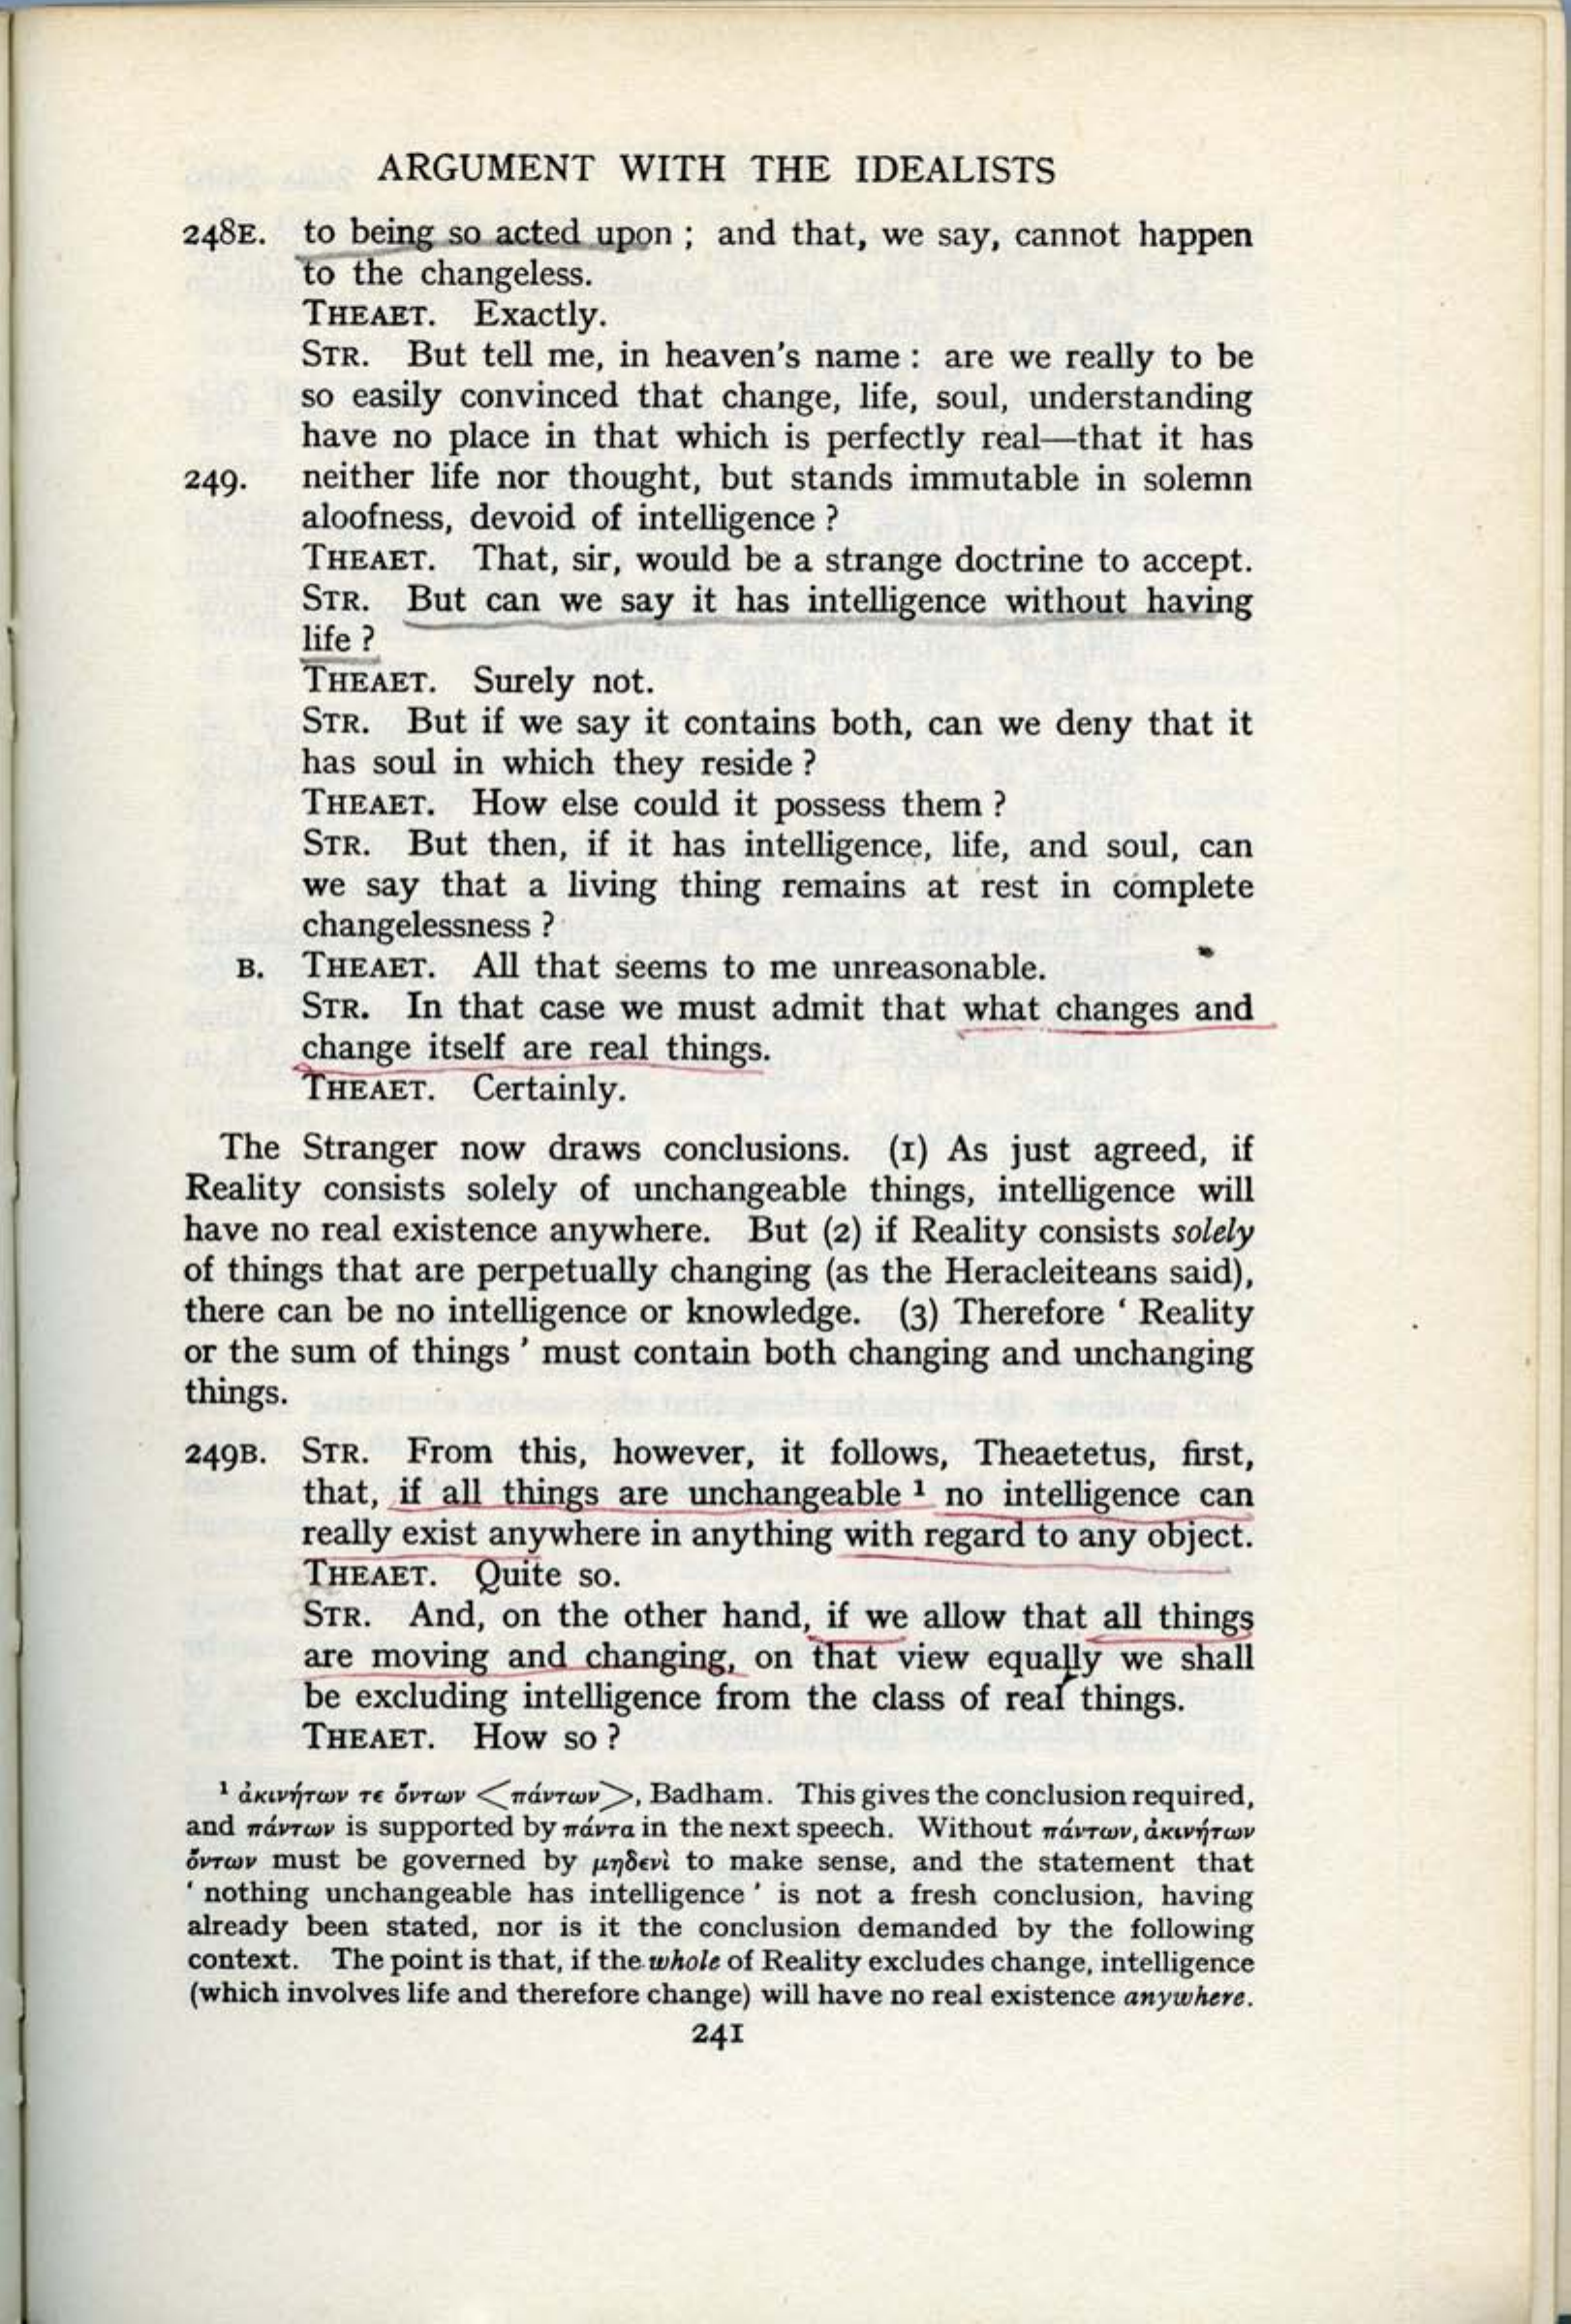 ARGUMENT WITH THE IDEALISTS
248E. to being so acted upon ; and that, we say, cannot happen
to the changeless.
THEAET. Exactly.
STR. But tell me, in heaven's name : are we really to be
so easily convinced that change, life, soul, understanding
have no place in that which is perfectly real—that it has
249. neither life nor thought, but stands immutable in solemn
aloofness, devoid of intelligence ?
THEAET. That, sir, would be a strange doctrine to accept.
STR. But can we say it has intelligence without having
life ?
THEAET. Surely not.
STR. But if we say it contains both, can we deny that it
has soul in which they reside ?
THEAET. How else could it possess them ?
STR. But then, if it has intelligence, life, and soul, can
we say that a living thing remains at rest in complete
changelessness ?
B. THEAET. All that seems to me unreasonable.
STR. In that case we must admit that what changes and
change itself are real things.
THEAET. Certainly.
The Stranger now draws conclusions. (1) As just agreed, if
Reality consists solely of unchangeable things, intelligence will
have no real existence anywhere. But (2) if Reality consists solely
of things that are perpetually changing (as the Heracleiteans said),
there can be no intelligence or knowledge. (3) Therefore ' Reality
or the sum of things ' must contain both changing and unchanging
things.
249B. STR. From this, however, it follows, Theaetetus, first,
that, if all things are unchangeable ¹ no intelligence can
really exist anywhere in anything with regard to any object.
THEAET. Quite so.
STR. And, on the other hand, if we allow that all things
are moving and changing, on that view equally we shall
be excluding intelligence from the class of real things.
THEAET. How so ?
¹ ἀκινήτων τε ὄντων <πάντων>, Badham. This gives the conclusion required,
and πάντων is supported by πάντα in the next speech. Without πάντων, ἀκινήτων
ὄντων must be governed by μηδενὶ to make sense, and the statement that
' nothing unchangeable has intelligence ' is not a fresh conclusion, having
already been stated, nor is it the conclusion demanded by the following
context. The point is that, if the whole of Reality excludes change, intelligence
(which involves life and therefore change) will have no real existence anywhere.
241